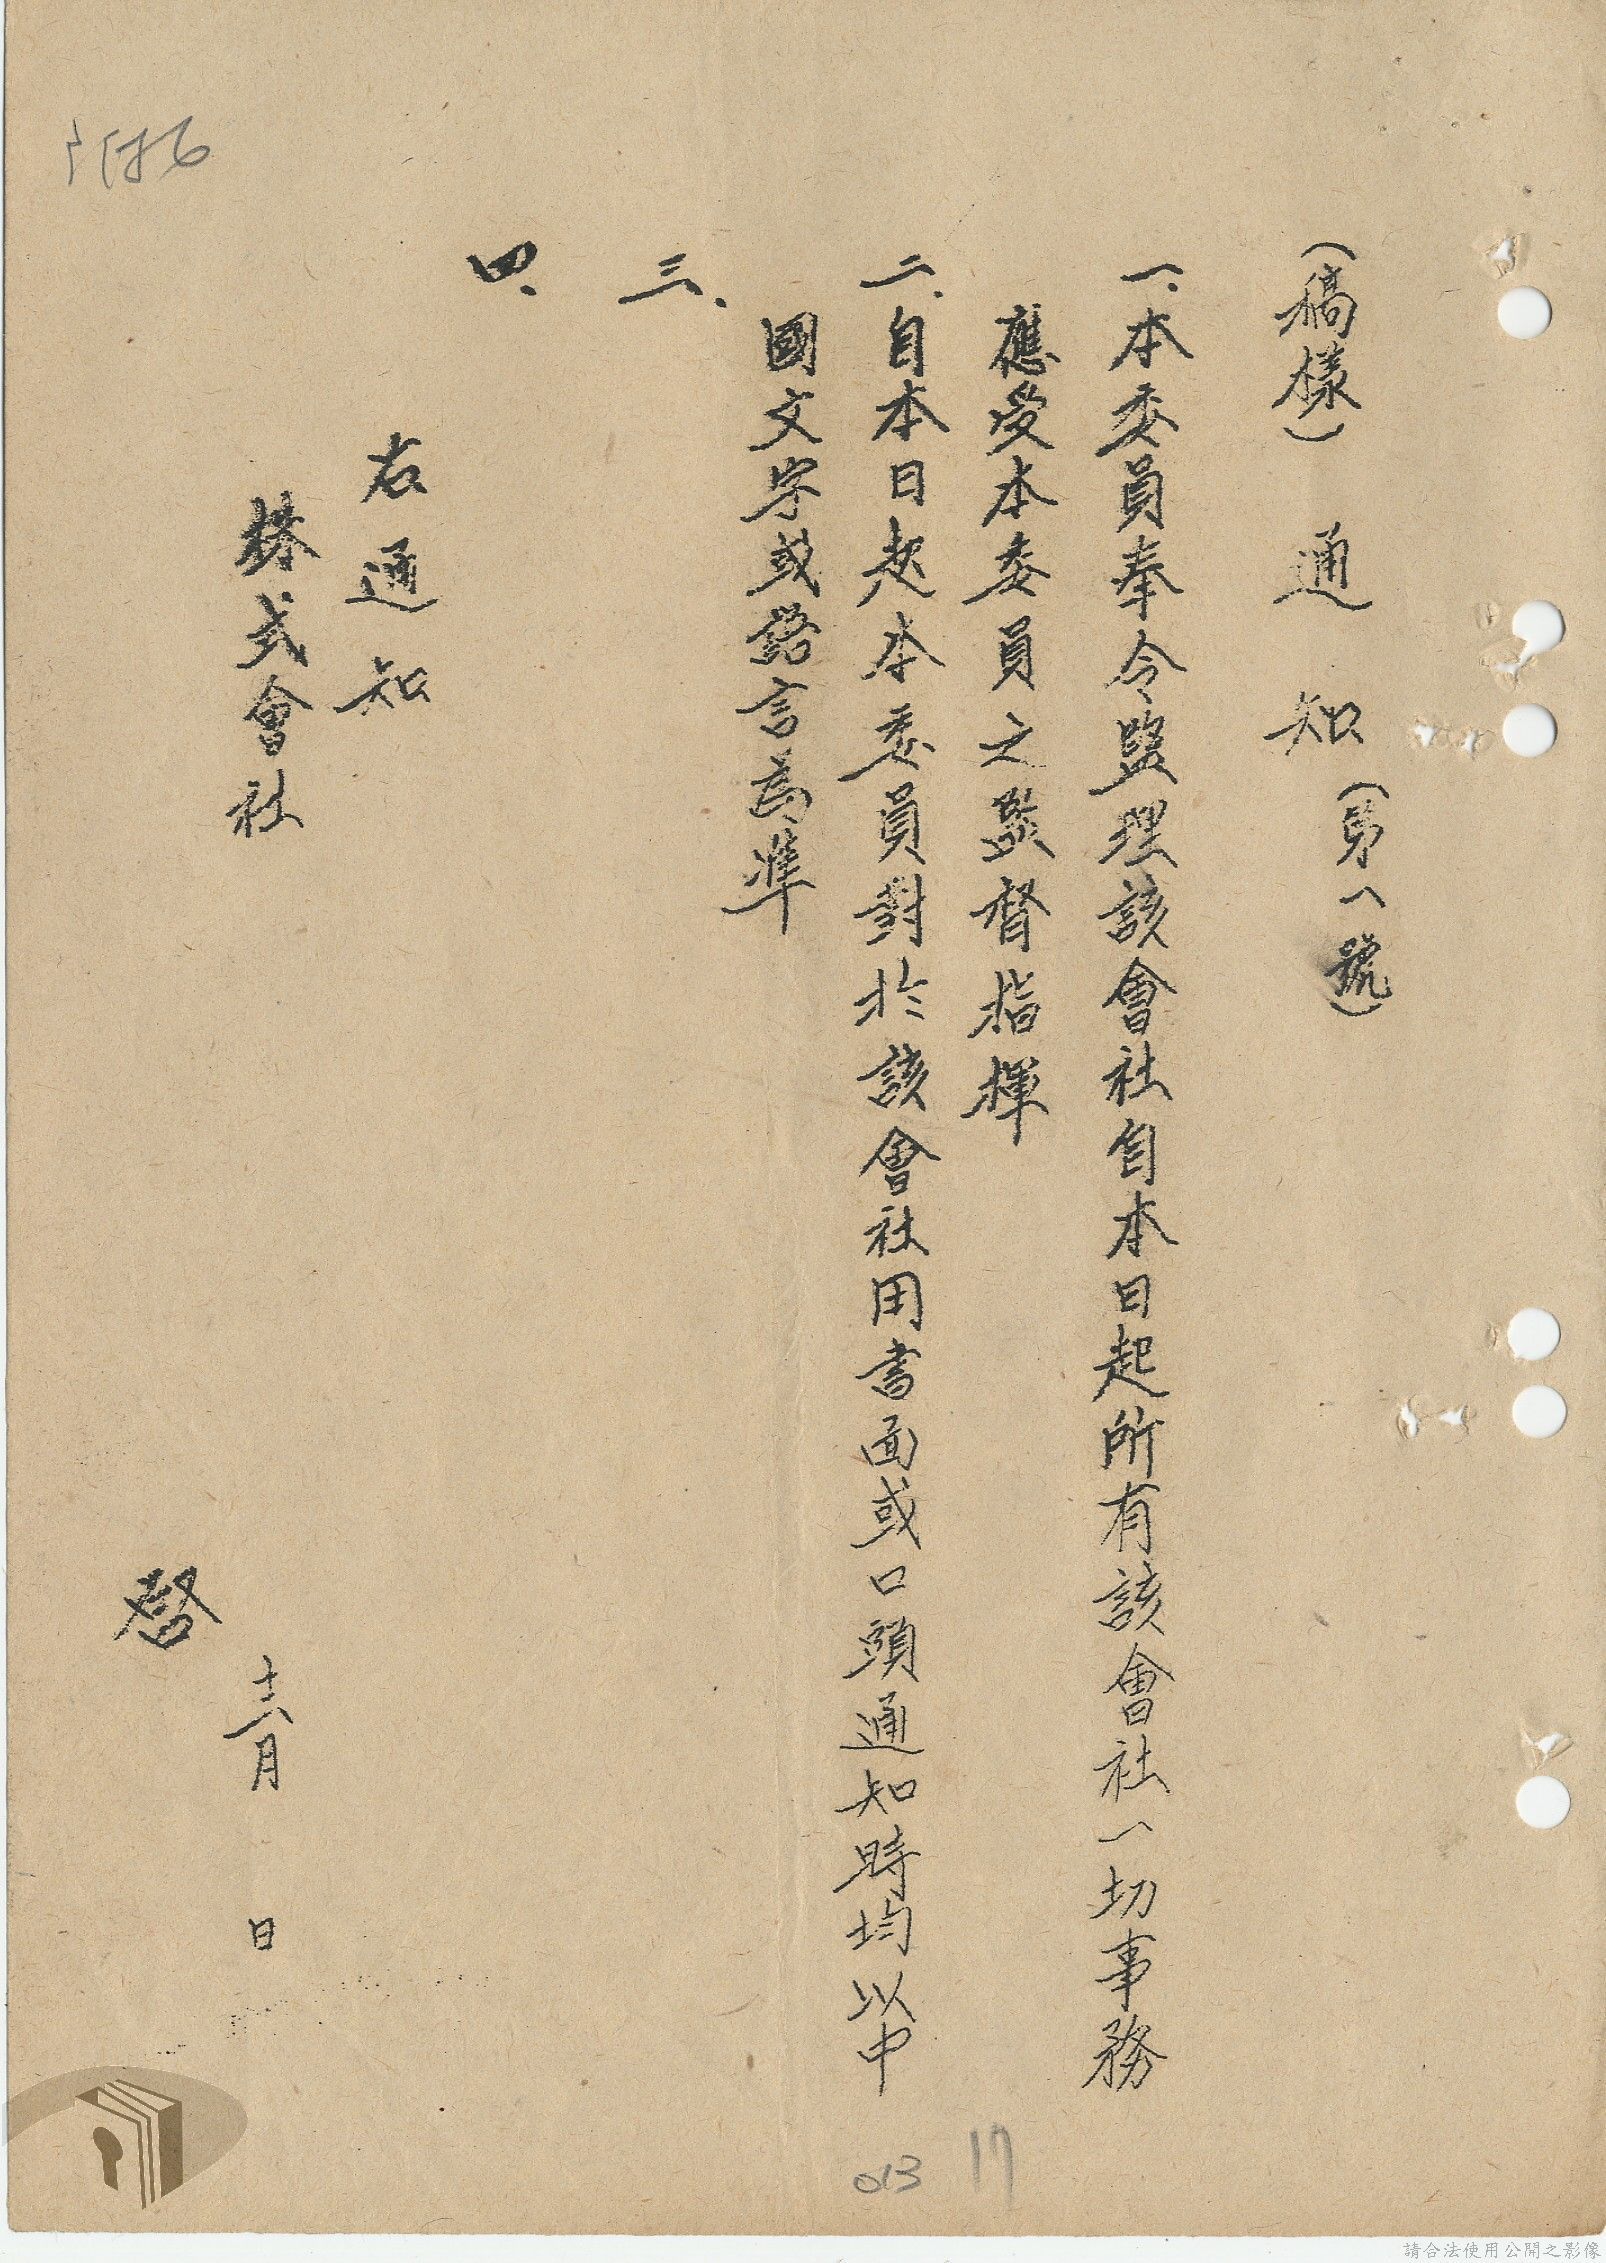 (稿樣) 通知(第一號)
一、本委員奉令監理該會社自本日起所有該會社一切事務
應受本委員之監督指揮
二、自本日起本委員對於該會社用書面或口頭通知時均以中
國文字或語言為準
三、
四、
右通知
株式會社
十二月 日
啓
17
013
請合法使用公開之影像